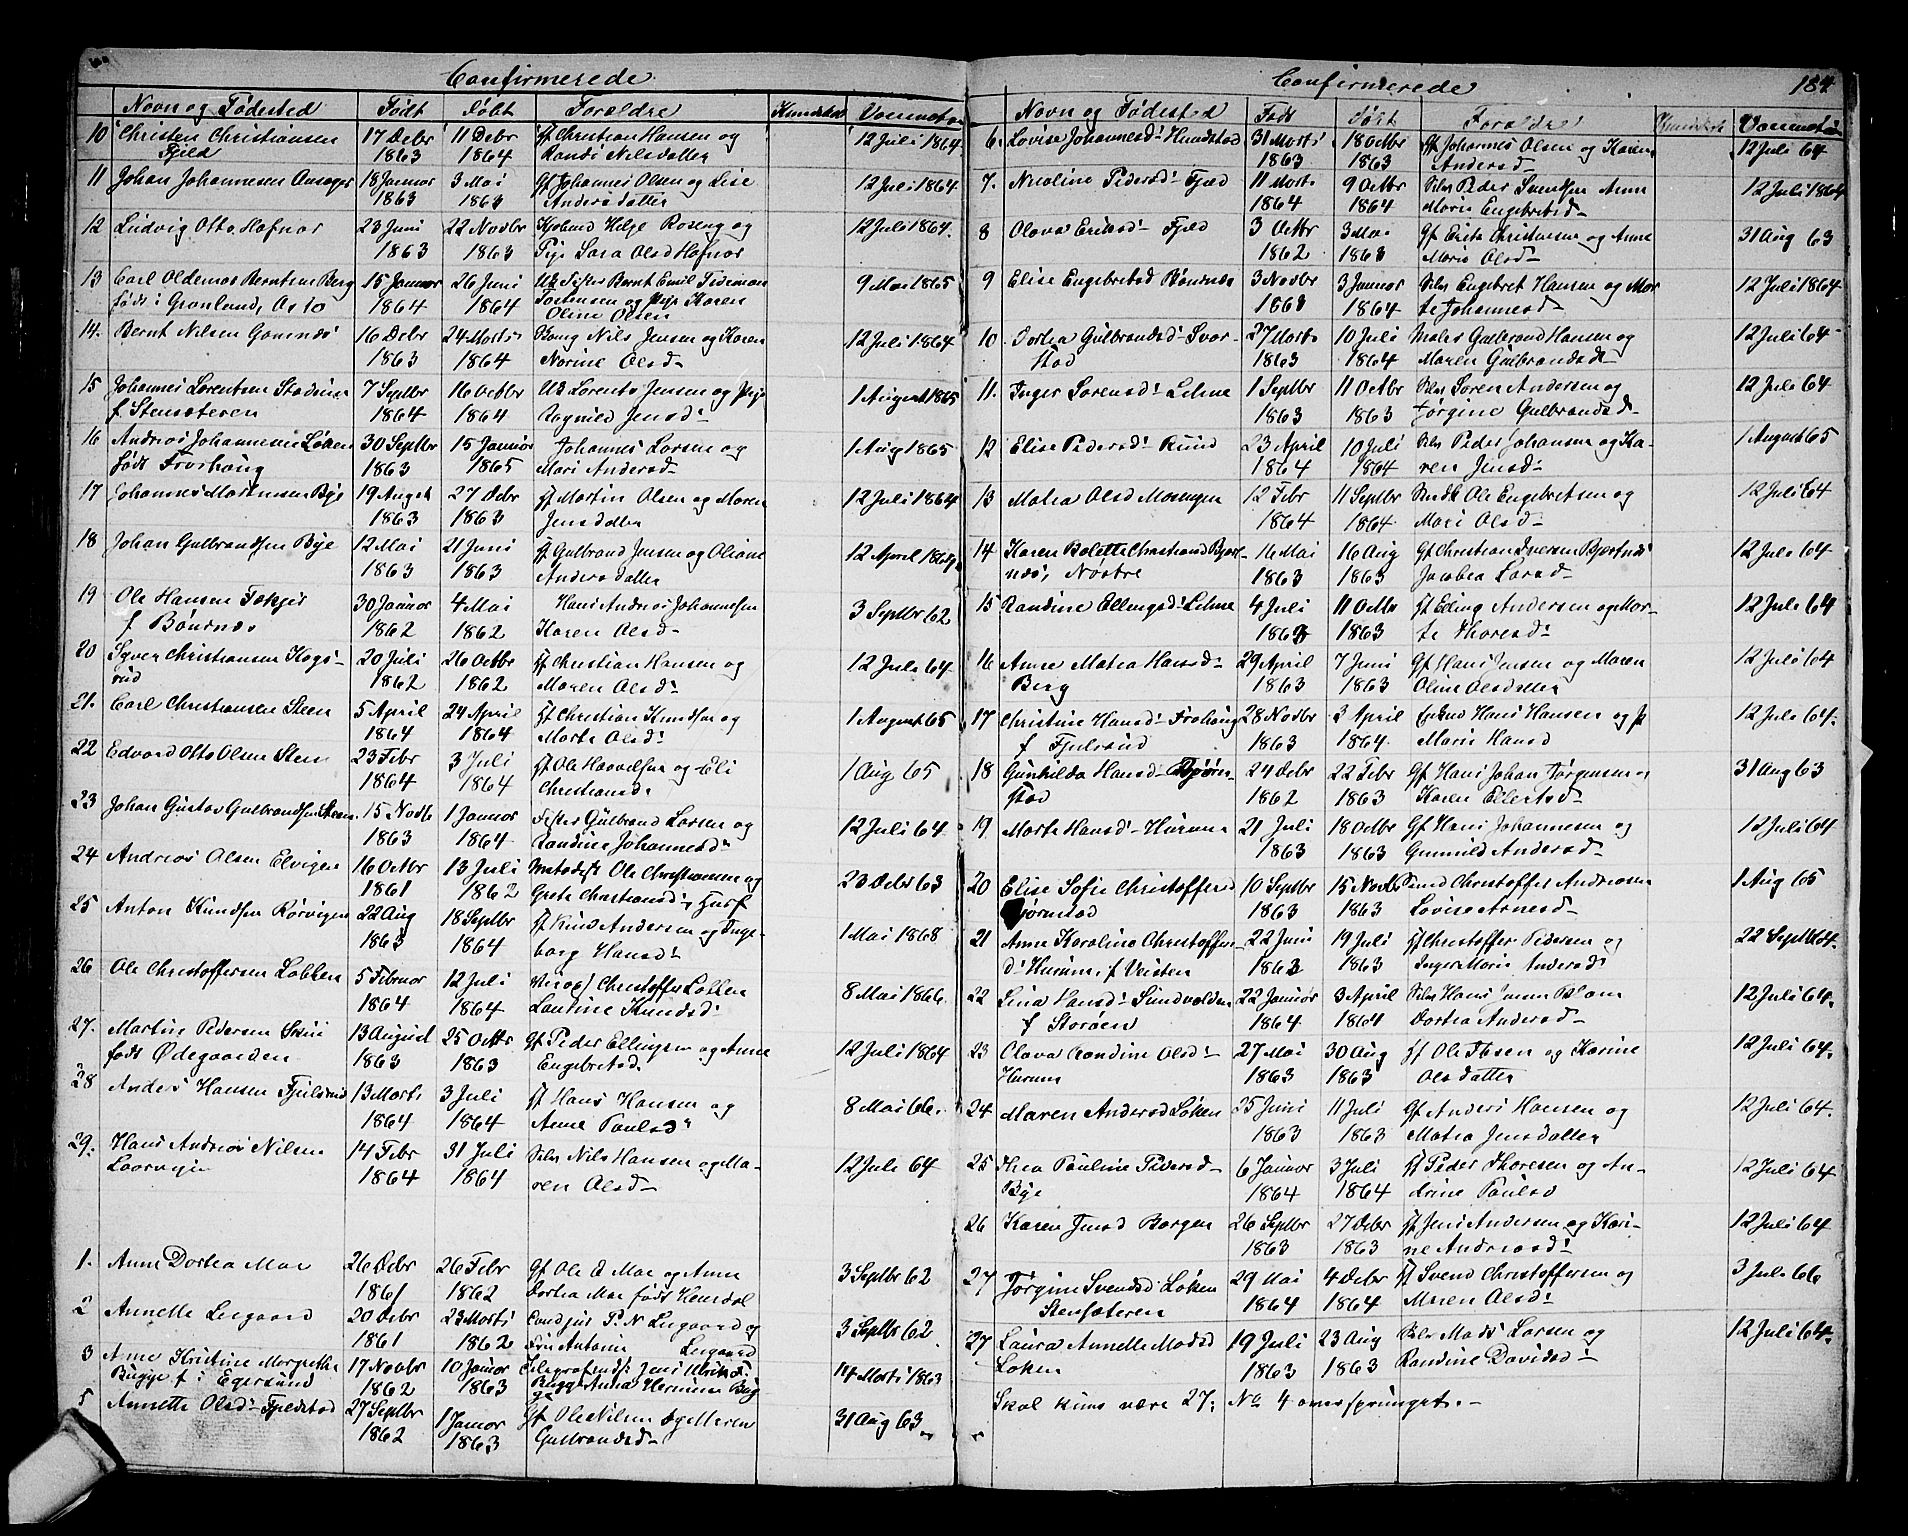 Confirmerede
Navn og Fødested Født Døbt Forældre Kundskab Vaccinat
10 Christen Christiansen 17 Debr 11 Debr Gf Christian Hansen og 12 Juli 1864
Fjeld 1863 1864 Randi Nilsdatter
11 Johan Johannesen 18 Januar 3 Mai Gf Johannes Olsen og Lise 12 Juli 1864
1863 1863 Andersdatter
12 Ludvig Otto Hafnor 23 Juni 22 Novbr Helge Roseng og 12 Juli 1864.
1863 1863 Pige Sara Olsd Hafnor
13 Carl Oldemar Berntsen Berg 15 Januar 26 Juni Bernt Emil Tideman 9 Mai 1865
født i Grønland, Oslo 1864 1864 Torstensen og Pige Karen
Oline Olsen
14. Bernt Nilsen 16 Debr 24 Marts Nils Jensen og Karen 12 Juli 1864
1863 1864 Norine Olsd
15 Johannes Lorentsen 7 Septbr 16 Octbr Lorents Jensen og Pige 1 August 1865
f Stensæteren 1864 1864 Ragnild Jensd:
16 Andreas Johannesen Løken 30 Septbr 15 Januar Johannes Larsen og 1 Aug 1865
født Frøshaug 1863 1865 Mari Andersd
17 Johannes Martinsen Bye 19 August 27 Debr Gf Martin Olsen og Maren 12 Juli 1864
1863 1863 Jensdatter
18 Johan Gulbrandsen Bye 12 Mai 21 Juni Gf Gulbrand Jensen og Oliane 12 April 1864
1863 1863 Andersdatter
19 Ole Hansen 30 Januar 4 Mai Hans Andreas Johannesen 3 Septbr 62
f Bønsnæs 1862 1862 Karen Olsd
20 Syver Christiansen 20 Juli 26 Octbr Gf Christian Hansen og 12 Juli 64
rud 1862 1862 Maren Olsd:
21. Carl Christiansen Steen 5 April 24 April Gf Christian Knudsen og 1 August 65
1864 1864 Marte Olsd:
22 Edvard Otto Olsen Steen 23 Febr 3 Juli Gf Ole Haavelsen og Eli 1 Aug 65
1864 1864 Christiansd:
23 Johan Gustav Gulbrandsen Steen. 15 Novb 1 Januar Gulbrand Larsen og 12 Juli 64
1863 1864 Randine Johannesd:
24 Andreas Olsen Elvigen 16 Octbr 13 Juli Ole Christiansen og 23 Debr 63
1861 1862 Grete Christiansd:
25 Anton Knudsen Rørvigen 22 Aug 18 Septbr Gf Knud Andersen og Inge- 1 Mai 1868
1863 1864 borg Hansd:
26 Ole Christoffersen Løkken 5 Februar 12 Juli Christoffer Løkken 8 Mai 1866.
1864 1864 Knudsd:
27. Martin Pedersen 13 August 25 Octbr Gf Peder Ellingsen og Anne 12 Juli 1864
født Ødegaarden 1863 1863 Engebretsd.
28 Anders Hansen Fjulsrud 13 Marts 3 Juli Gf Hans Hansen og 8 Mai 66.
1864 1864 Anne Paulsd
29. Hans Andreas Nilsen 14 Febr 31 Juli Selv Nils Hansen og Ma- 12 Juli 64
1864 1864 ren Olsd
1. Anne Dortea Moe 26 Debr 26 Febr Gf Ole E Moe og Anne 3 Septbr 62
1861 1862 Dortea Moe født
2 Annette Leegaard 20 Debr 23 Marts P. N Leegaard og 3 Septbr 62
1861 1862 Fru Antoine Leegaard
3 Anne Kristine Margrethe 17 Novbr 10 Januar Telegrafinsp. 14 Marts 1863
Bugge f i Egersund 1862 1863 Bugge Anna Hermine Bug
ge
5 Annette Olsd: Fjeldstad 27 Septbr 1 Januar Gf Ole Nilsen og Maren 31 Aug 63
1862 1863 Gulbrandsd
Confirmerede 184
Navn og Fødested Født Døbt Forældre Kundskab Vaccinat
6. Lovise Johannesd: Hundstad 31 Marts 18 Octbr Gf Johannes Olsen og Karen 12 Juli 64
1863 1863 Andersd
7. Nicoline Pedersd: Fjeld 11 Marts 9 Octbr Selv Peder Svendsen Anne 12 Juli 1864
1864 1864 Marie Engebretsd
8 Olava Eriksd: Fjeld 3 Octbr 3 Mai Gf Erik Christiansen og Anne 31 Aug 63
1862 1863 Marie Olsd
9 Elise Engebretsd Bønsnæs 3 Novbr 3 Januar Selv Engebret Hansen og Mar 12 Juli 1864
1863 1864 te Johannesd:
10. Dortea Gulbrandsd: Svar- 27 Marts 10 Juli Gulbrand Hansen og 12 Juli 64
stad 1863 1864 Maren Gulbrandsdt
11. Inger Sørensd: Lehne 1 Septbr 11 Octbr Selv Søren Andersen og 12 Juli 64
1863 1863 Jørgine Gulbrandsd
12 Elise Pedersd: Rund 23 April 10 Juli Selv Peder Johansen og Ka- 1 August 65
1864 1864 ren Jensd:
13 Matea Olsd 12 Febr 11 Septbr Ole Engebretsen og 12 Juli 64
1864 1864 Mari Olsd
14 Karen Bolette Christiansd 16 Mai 16 Aug Gf Christian Iversen 12 Juli 64
næs, Nøstre 1863 1863 Jacobea Larsd
15 Randine Ellingsd: Lehne 4 Juli 11 Octbr Gf Elling Andersen og Mar- 12 Juli 64
1863 1863 te Thoresd:
16 Anne Matea Hansd: 29 April 7 Juni Gf Hans Jensen og Maren 12 Juli 64
Berg 1863 1863 Oline Olsdatter
17 Christine Hansd: Frøhaug 28 Novbr 3 April Hans Hansen og 12 Juli 64.
f Fjulsrud 1863 1864 Marie Hansd
18 Gunhilda Hansd Bjørn- 24 Debr 22 Febr Gf Hans Johan Jørgensen og 31 Aug 63
stad 1862 1863 Karen Ellertsd
19. Marte Hansd: Hurum 21 Juli 18 Octbr Gf Hans Johannesen og 12 Juli 64
1863 1863 Gunnild Andersd
20 Elise Sofie Christoffersd 10 Septbr 15 Novbr Christoffer Andreasen 1 Aug 65
Bjørnstad 1863 1863 Lovise Arnesd
21 Anne Karoline Christoffers- 22 Juni 19 Juli Gf Christoffer Pedersen og 22 Sept 64.
d: Hurum, f Veisten 1863 1863 Inger Marie Andersd:
22 Lina Hansd: Sundvolden 22 Januar 3 April Selv Hans Jensen Blom 12 Juli 64
f Storøen 1864 1864 Dortea Andersd:
23 Olava Randine Olsd: 27 Mai 30 Aug Gf Ole Ibsen og Karine 12 Juli 64.
Hurum 1863 1863 Olsdatter
24 Maren Andersd Løken 25 Juni 11 Juli Gf Anders Hansen og 12 Juli 64.
1863 1863 Matea Jensdatter
25 Thea Pauline Pedersd 6 Januar 3 Juli Gf Peder Thoresen og An- 12 Juli 64
Bye 1864 1864 drine Paulsd
26 Karen Jensd Borgen 26 Septbr 27 Debr Gf Jens Andersen og Kari- 12 Juli 64
1863 1863 ne Andreasd:
27 Jørgine Svendsd Løken 29 Mai 4 Debr Gf Svend Christoffersen og 3 Juli 66
Stensæteren 1864 1864 Maren Olsd:
27 Laura Annette Madsd 19 Juli 23 Aug Selv Mads Larsen og 12 Juli 64.
Løken 1863 1863 Randine Davidsd:
Skal kuns være 27; No 4 oversprunget.